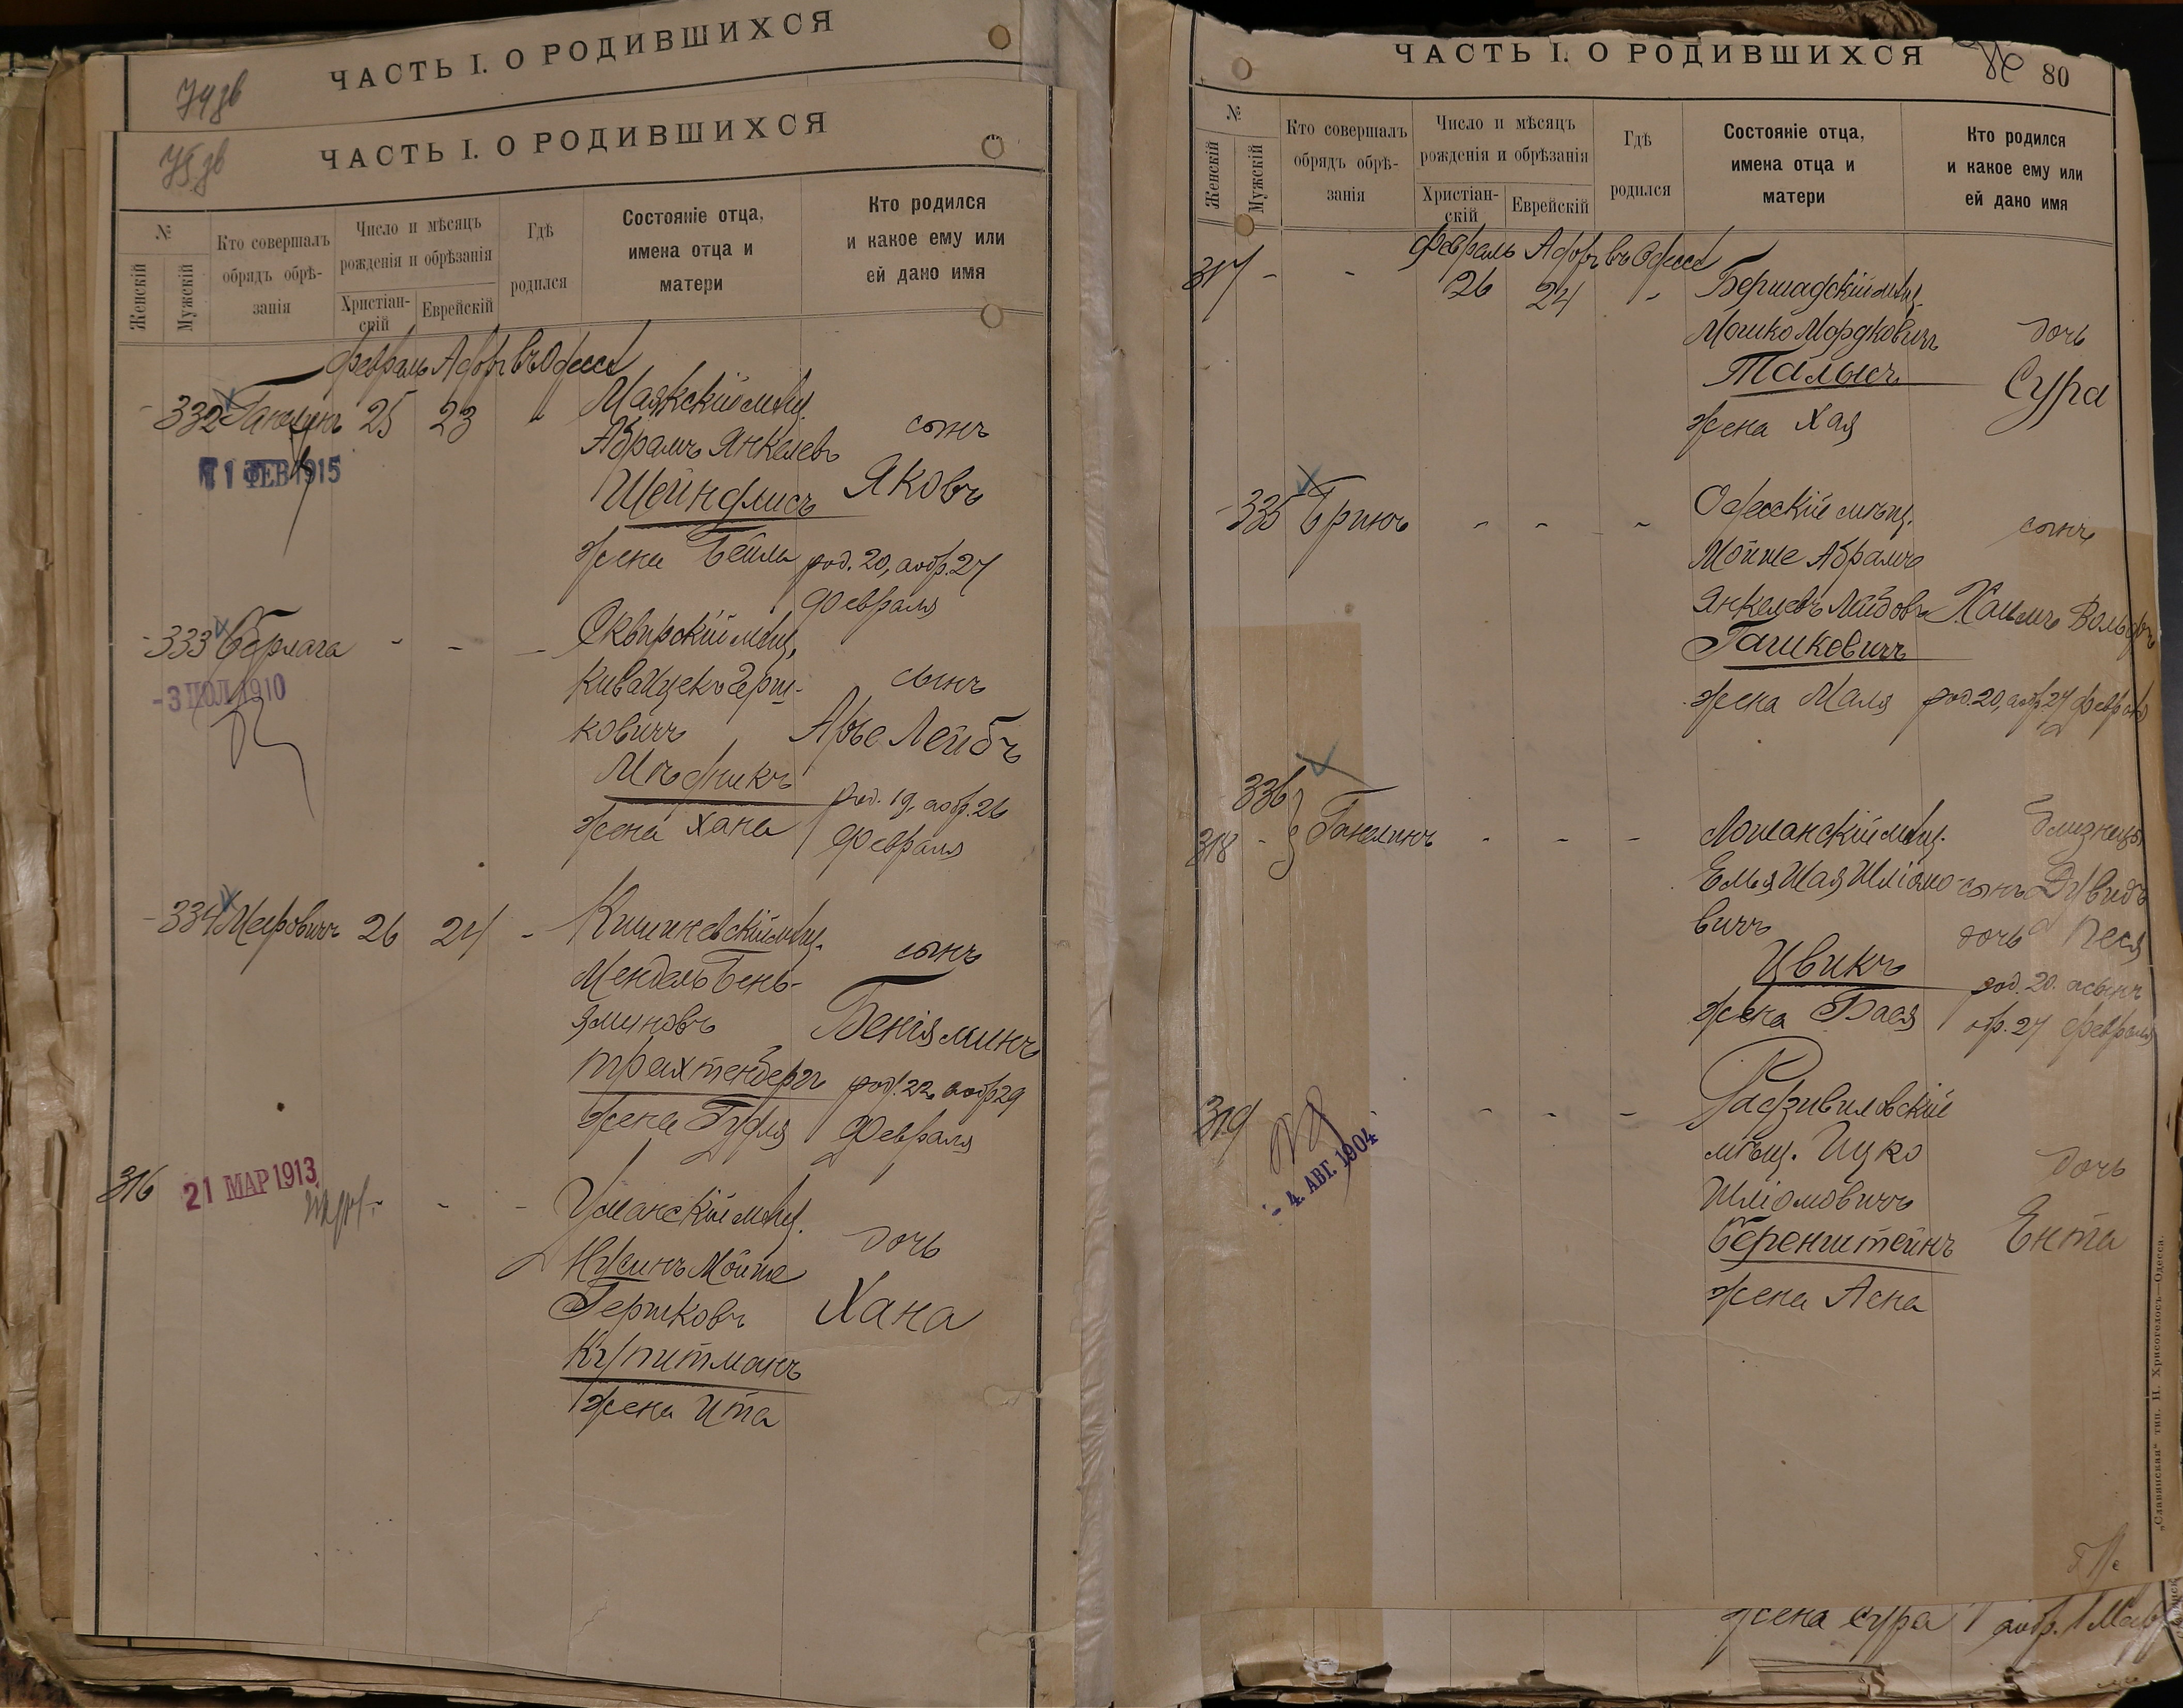 ЧАСТЬ I. О РОДИВШИХСЯ
ЧАСТЬ I. О РОДИВШИХСЯ
№
Женскій
Мужскій
Кто совершалъ
обрядъ обрѣ-
занія
Число и мѣсяцъ
рожденія и обрѣзанія
Христіан-
скій
Еврейскій
Гдѣ
родился
Состояніе отца,
имена отца и
матери
Кто родился
и какое ему или
ей дано имя
Февраль Адаръ въ Одессѣ
332 Ганелинъ 25 23 "
Маякскій мѣщ.
Абрамъ Янкелевъ
Шейнфлисъ
жена Бейла
сынъ
Яковъ
род. 20, а обр. 27
февраля
ФЕВ 1915
333 Серлага - - -
Сквирскій мѣщ.
Кива Ицекъ Герш-
ковичъ
Мѣдникъ
жена Хана
сынъ
Арье Лейбъ
род. 19, а обр. 26
февраля
-3 ІЮЛ 1910
334 Меировичъ 26 24 -
Кишиневскій мѣщ.
Мендель Бень-
яминовъ
Трахтенбергъ
жена Гудля
сынъ
Беніяминъ
род. 22, а обр 29
февраля
316
21 МАР 1913
Уманскій мѣщ.
Нусинъ Мойше
Гершковъ
Купитманъ
жена Ита
дочь
Хана
ЧАСТЬ I. О РОДИВШИХСЯ
80
№
Женскій
Мужскій
Кто совершалъ
обрядъ обрѣ-
занія
Число и мѣсяцъ
рожденія и обрѣзанія
Христіан-
скій
Еврейскій
Гдѣ
родился
Состояніе отца,
имена отца и
матери
Кто родился
и какое ему или
ей дано имя
Февраль Адаръ въ Одессѣ
317 - - 26 24 "
Бершадскій мѣщ.
Мошко Мордковичъ
Талысъ
жена Хая
дочь
Сура
335 Гринъ - - -
Одесскій мѣщ.
Мойше Абрамъ
Янкелевъ Лейбовъ
Гашковичъ
жена Маля
сынъ
Хаимъ Вольфъ
род. 20, а обр 27 февраля
336
318 - Ганелинъ - - -
Ломанскій мѣщ.
Емья Шая Шліомо-
вичъ
Цвикъ
жена Бася
близнецы
сынъ Дувидъ
дочь Песя
род. 20. а сынъ
обр. 27 февраля
319
4. АВГ. 1904
Радзивиловскій
мѣщ. Ицко
Шліомовичъ
Беренштейнъ
жена Асна
дочь
Ента
жена Сура
а обр. 1 Мар
„Славянская“ тип. Н. Хрисогелосъ—Одесса.